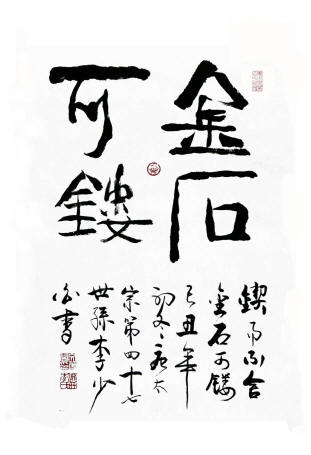 金石
可鏤
鍥而不舍
金石可镂
己丑年
初冬唐太
宗第四十七
世孫李少
白書